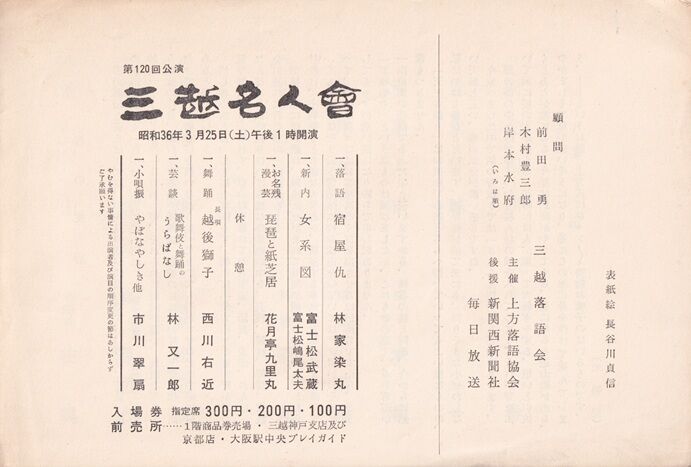 表紙絵 長谷川貞信
三越落語会
主催 上方落語協会
後援 新関西新聞社
毎日放送
顧問
前田勇
木村豊三郎
岸本水府
(いろは順)
第120回公演
三越名人會
昭和36年3月25日(土)午後1時開演
一、落語 宿屋仇 林家染丸
一、新内 女系図 富士松武蔵
富士松嶋尾太夫
一、お名残漫芸 琵琶と紙芝居 花月亭九里丸
休憩
一、舞踊 長唄 越後獅子 西川右近
一、芸談 歌舞伎と舞踊のうらばなし 林又一郎
一、小唄振 やぼなやしき他 市川翠扇
やむを得ない事情による出演者及び演目の順序変更の節はあしからず
ご了承願います
入場券 指定席 300円・200円・100円
前売所……1階商品券売場・三越神戸支店及び
京都店・大阪駅中央プレイガイド